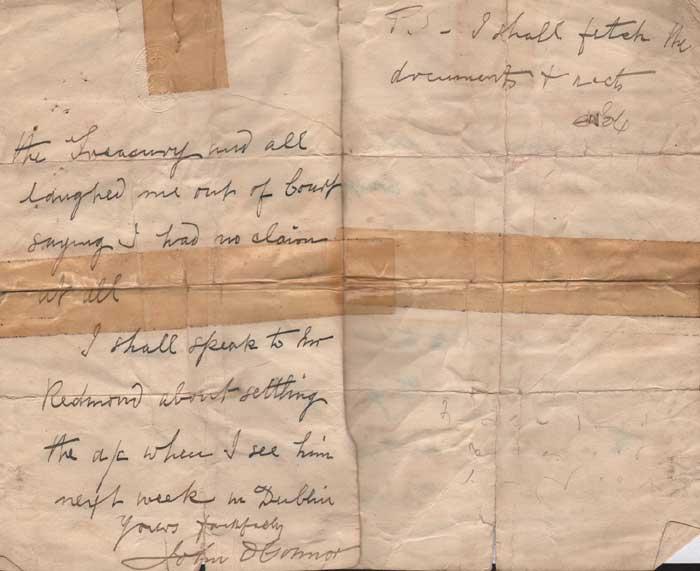 the Treasury and all
laughed me out of Court
saying I had no claim
at all
I shall speak to Mr
Redmond about settling
the a/c when I see him
next week in Dublin
Yours faithfully
John O'Connor
P.S - I shall fetch the
documents &